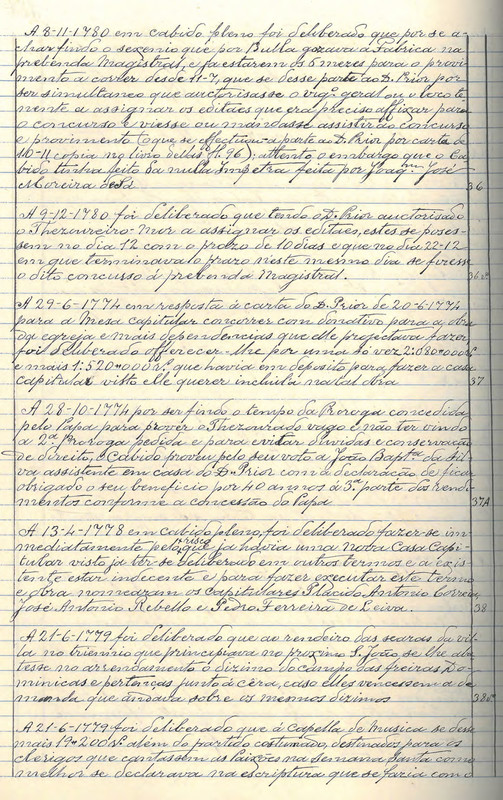 A 8-11-1780 em cabido pleno foi deliberado que por se a-
char findo o sexenio que por Bulla gozava a Fabrica na
prebenda Magistral, e já estarem os 6 mezes para o provi-
mento a correr desde 11-7, que se desse parte ao D. Prior por
ser simultaneo que auctorisasse o vigº geral ou o loco te-
nente a assignar os editaes que era preciso affixar para
o concurso e viesse ou mandasse assistir ao concurso
e provimento (o que se effectuou a parte ao D. Prior por carta de
10-11 copia no livro dellas fl. 96); attento o embargo que o Ca-
bido tinha feito da nulla impetra feita por Joaqm José
Moreira de Sá 36
A 9-12-1780 foi deliberado que tendo o D. Prior auctorisado
o Thezoureiro-Mor a assignar os editaes, estes se pozes-
sem no dia 12 com o prazo de 10 dias e que no dia 22-12
em que terminava o prazo neste mesmo dia se fizesse
o dito concurso á prebenda Magistral. 36vº
A 29-6-1774 em resposta á carta do D. Prior de 20-6-1774
para a Mesa capitular concorrer com donativo para a obra
da egreja e mais dependencias que elle projectava fazer,
foi deliberado offerecer-lhe por uma só vez 2:080#000rs
e mais 1:520#000rs que havia em deposito para fazer a casa
capitular visto elle querer incluil-a na tal obra 37
A 28-10-1774 por ser findo o tempo da Proroga concedida
pelo Papa para prover o Thezourado vago e não ter vindo
a 2ª Proroga pedida e para evitar duvidas e conservação
de direito, o Cabido proveu pelo seu voto a João Baptª da Sil-
va assistente em casa do D. Prior com a declaração de ficar
obrigado o seu beneficio por 40 annos á 3ª parte dos rendi-
mentos conforme a concessão do Papa 37A
A 13-4-1778 em cabido pleno, foi deliberado fazer-se im-
mediatamente pelo risco que já havia uma nova Casa Capi-
tular visto já ter-se deliberado em outros termos e a exis-
tente estar indecente e para fazer executar este termo
e obra nomearam os Capitulares Placido Antonio Correia,
José Antonio Rebello e Pedro Ferreira de Leiva. 38
A 21-6-1779 foi deliberado que ao rendeiro das searas da vil-
la no triennio que principiava no proximo S. João, se lhe aba-
tesse no arrendamento o dizimo do campo das freiras Do-
minicas e pertenças junto á cêra, caso elles vencessem a de-
manda que andava sobre os mesmos dizimos 38vº
A 21-6-1779 foi deliberado que á Capella de Musica se desse
mais 19#200rs alem do partido costumado, destinados para os
clerigos que cantassem as Paixões na semana santa como
melhor se declarava na escriptura que se fazia com o